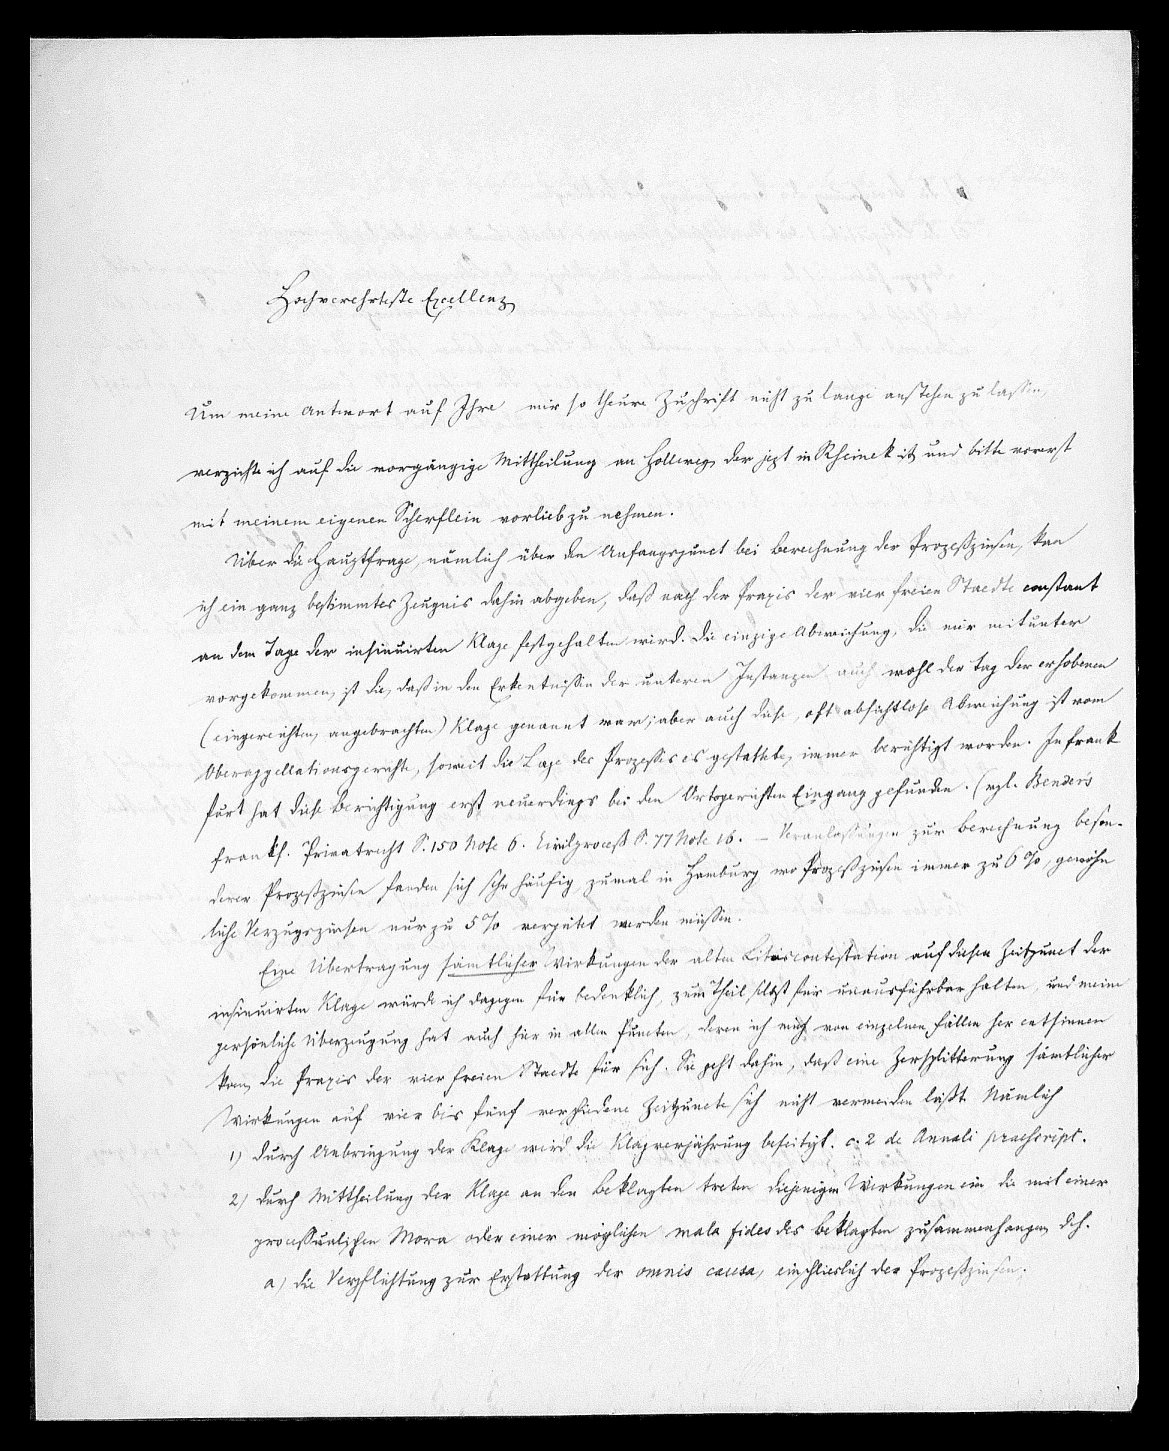 Hochverehrteste Excellenz
Um meine Antwort auf Ihre mir so theure Zuschrift nicht zu lange anstehen zu lassen,
verzichte ich auf die vorgängige Mittheilung an Hollweg, der jezt in Rheinek ist, und bitte vorerst
mit meinem eigenen Scherflein vorlieb zu nehmen.
Über die Hauptfrage, nämlich über den Anfangspunct bei Berechnung der Prozeßzinsen, kan
ich ein ganz bestimmtes Zeugnis dahin abgeben, daß nach der Praxis der vier freien Staedte constant
an dem Tage der insinuirten Klage festgehalten wird. Die einzige Abweichung, die mir mitunter
vorgekommen, ist die, daß in den Erkentnissen der unteren Instanzen auch wohl der Tag der erhobenen
(eingereichten, angebrachten) Klage genannt war; aber auch diese, oft absichtlose Abweichung ist vom
Oberappellationsgerichte, soweit die Lage des Prozesses es gestattete, immer berichtigt worden. In Frank
furt hat diese Berichtigung erst neuerdings bei den Ortsgerichten Eingang gefunden. (vgl. Benders
frankf. Privatrecht S. 150 Note 6. Civilproceß S. 77 Note 16. – Veranlassungen zur Berechnung beson-
derer Prozeßzinsen fanden sich sehr häufig, zumal in Hamburg wo Prozeßzinsen immer zu 6 %, gewöhn
liche Verzugszinsen nur zu 5 % vergütet werden müssen.
Eine Übertragung sämtlicher Wirkungen der alten Litiscontestation auf diesen Zeitpunct der
insinuirten Klage würde ich dagegen für bedenklich, zum Theil selbst für unausführbar halten, und meine
persönliche Überzeugung hat auch hier in allen Puncten, deren ich mich von einzelnen Fällen her entsinnen
kan, die Praxis der vier freien Staedte für sich. Sie geht dahin, daß eine Zersplitterung sämtlicher
Wirkungen auf vier bis fünf verschiedene Zeitpuncte sich nicht vermeiden läßt. Nämlich
1) durch Anbringung der Klage wird die Klagverjährung beseitigt. c. 2 de Annali praescript.
2) durch Mittheilung der Klage an den Beklagten treten diejenigen Wirkungen ein die mit einer
processualischen Mora oder einer möglichen mala fides des Beklagten zusammenhangen, d.h.
a) die Verpflichtung zur Erstattung der omnis causa, einschlieslich der Prozeßzinsen.